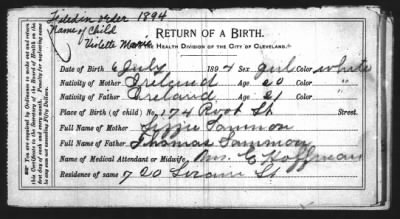 Filed in order 1894
Name of Child
Violette Marie
RETURN OF A BIRTH.
HEALTH DIVISION OF THE CITY OF CLEVELAND.
You are required by Ordinance to make out and return this Certificate to the Secretary of the Board of Health on the first day of each and every month. Penalty for neglecting same is any sum not exceeding Fifty Dollars.
Date of Birth 6 July 1894 Sex girl Color white
Nativity of Mother Ireland Age 20 Color "
Nativity of Father Ireland Age 21 Color "
Place of Birth (of child) No. 174 Root St Street.
Full Name of Mother Lizzie Sammon
Full Name of Father Thomas Sammon
Name of Medical Attendant or Midwife, Mrs. E Hoffman
Residence of same 720 Lorain St